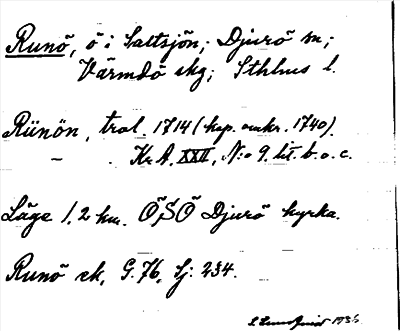 Runö, ö i Saltsjön; Djurö sn;
Värmdö skg; Sthlms l.
Rünön, trol. 1714 (kop. omkr. 1740).
— . Kr. A. XXII, N:o 9. lit. b. o. c.
Läge 1,2 km. ÖSÖ Djurö kyrka.
Runö ek, G. 76, Sj: 234.
1936